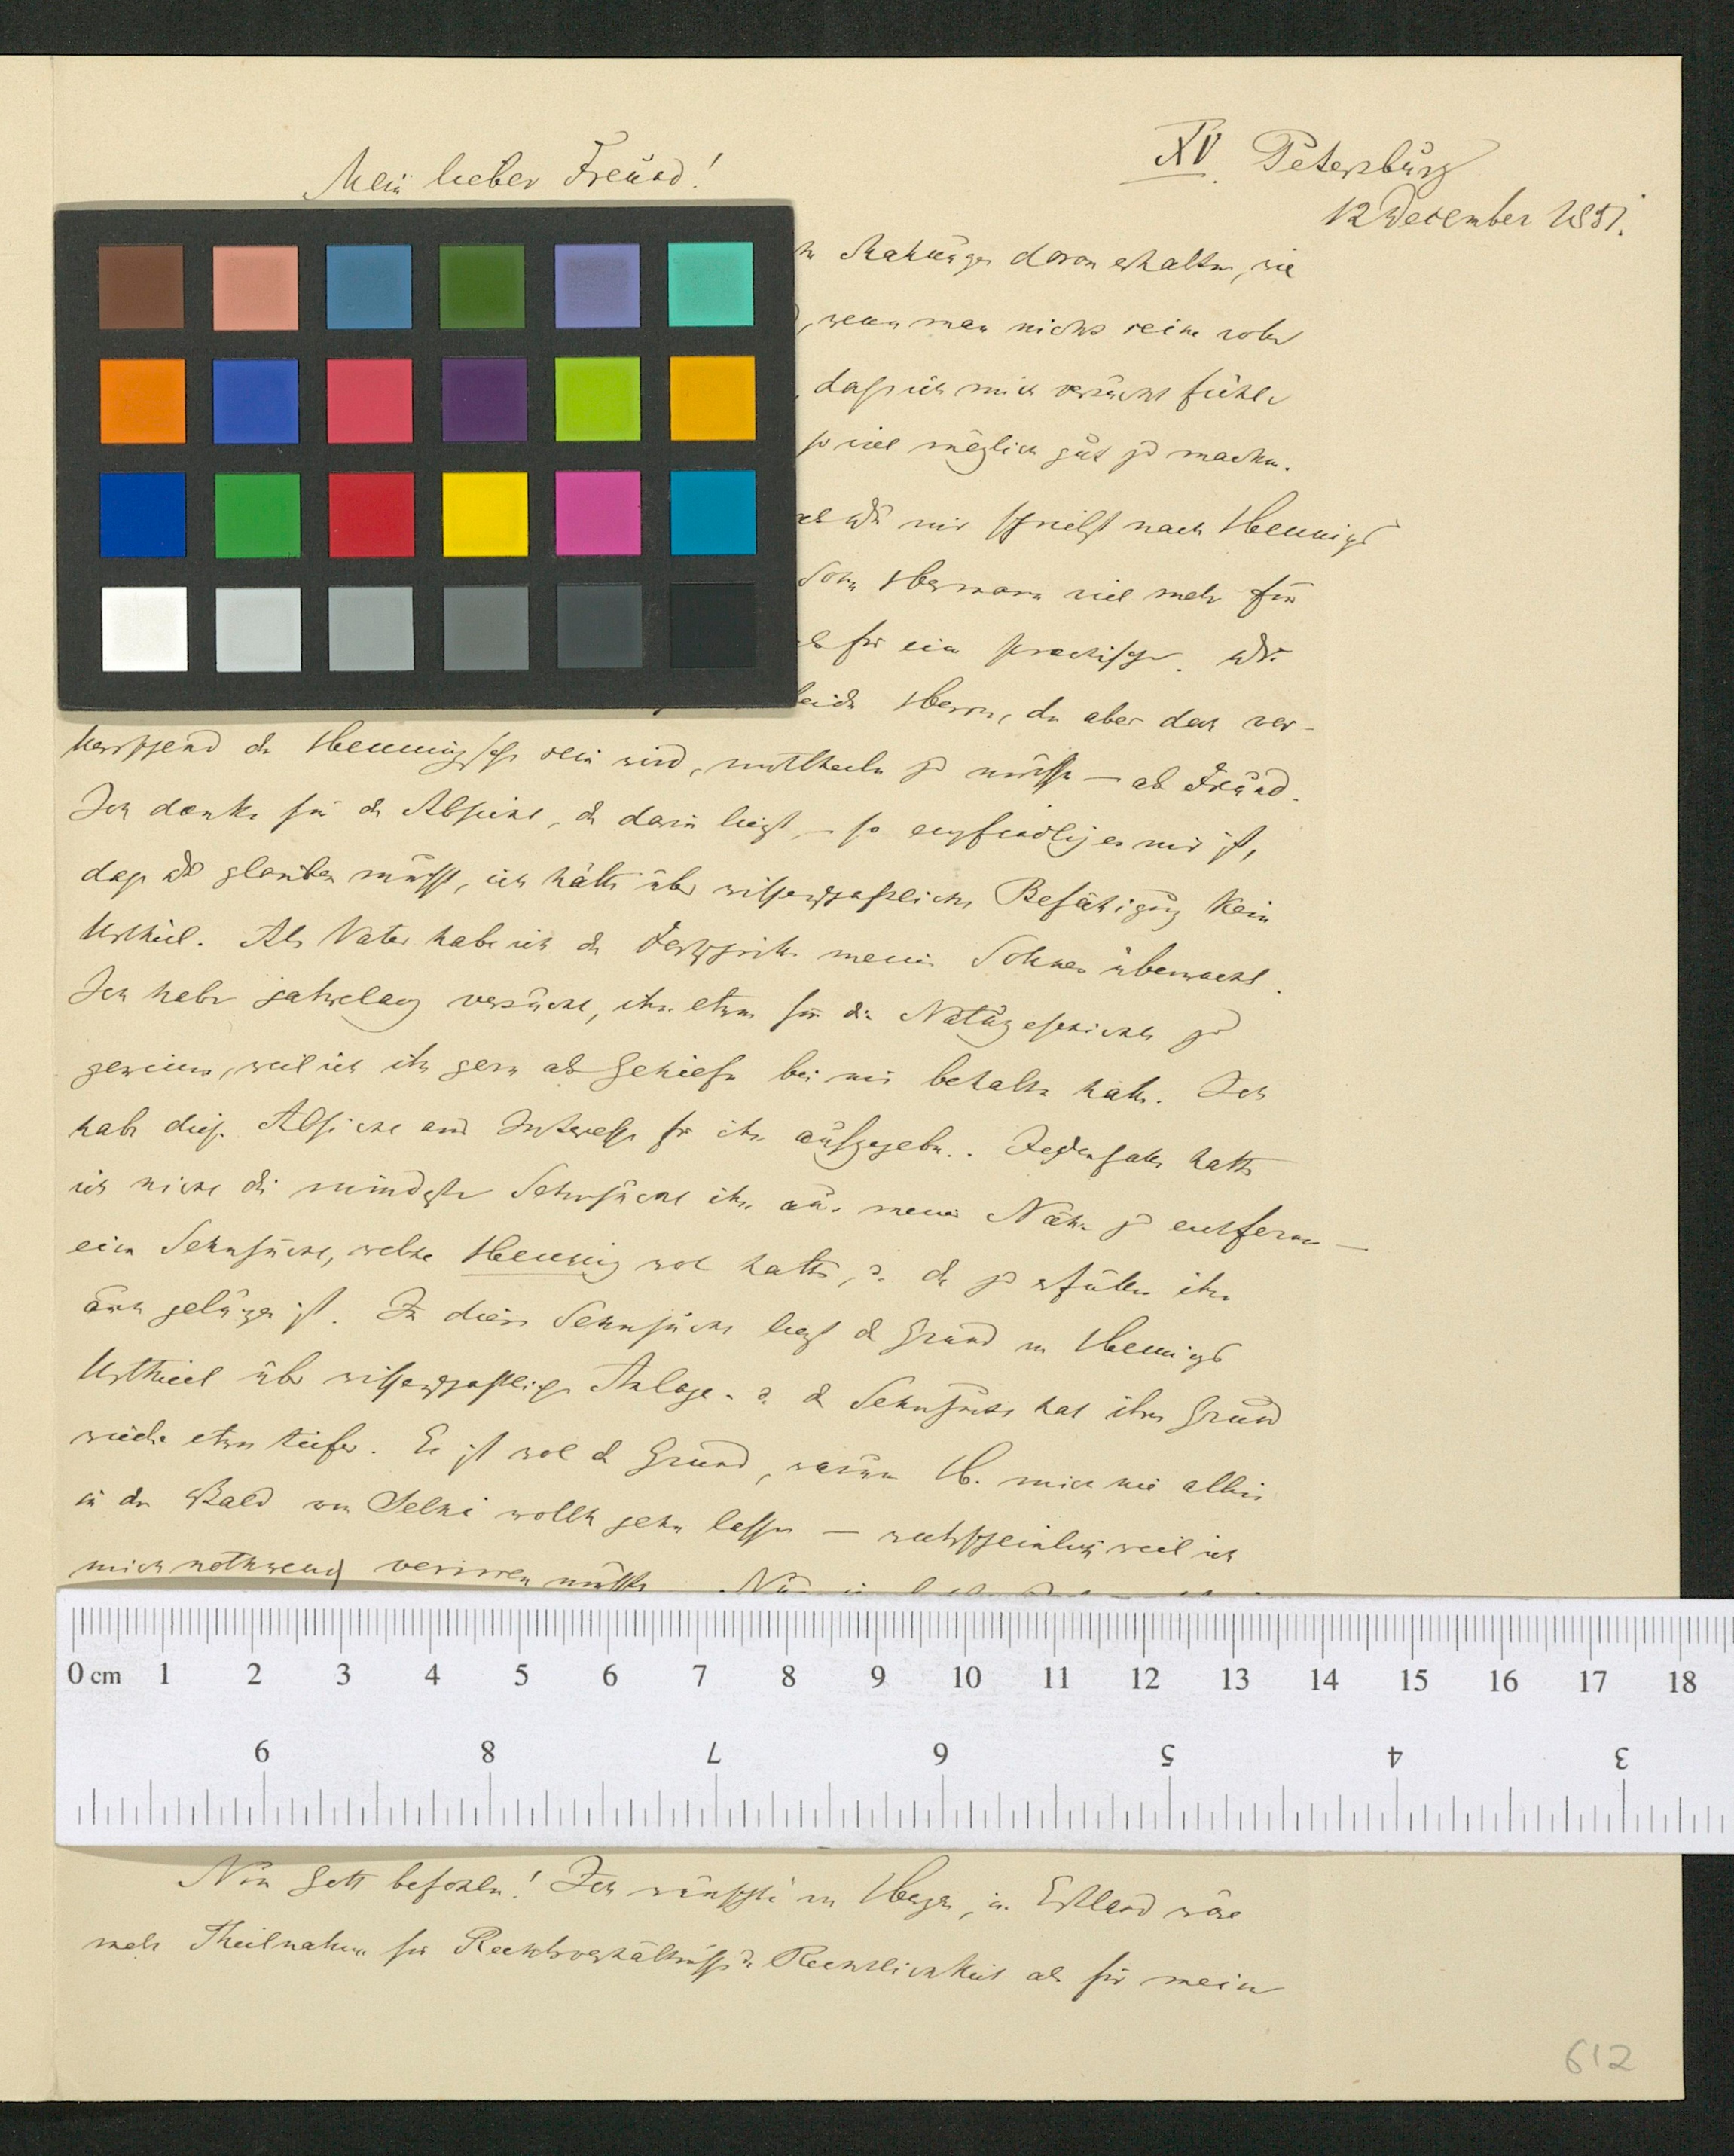 Mein lieber Freund!
XV. Petersburg
12 December 1851.
Mahnungen davon erhalten, wie
, wenn man nichts
, dass ich mich versucht fühle
so viel möglich gut zu machen.
Du mir schreibst nach Hennings
Sohn Hermann viel mehr für
für ein practisches. Du
beide Herrn, die aber doch vor-
herrschend die Henningsche sein wird, mittheilen zu müssen — als Freund.
Ich danke für die Absicht, die darin liegt, – so empfindlich es mir ist,
dass Du glauben musst, ich hätte über wissenschaftliche Befähigung kein
Urtheil. Als Vater habe ich die Fortschritte meines Sohnes überwacht.
Ich habe jahrelang versucht, ihn etwas für die Naturgeschichte zu
gewinnen, weil ich ihn gern als Gehülfen bei mir behalten hätte. Ich
habe diese Absicht aus Interesse für ihn aufgegeben. Jedenfalls hatte
ich nicht die mindeste Sehnsucht ihn aus meiner Nähe zu entfernen —
eine Sehnsucht, welche Henning wol hatte, u. die zu erfüllen ihm
auch gelungen ist. In dieser Sehnsucht liegt der Grund von Hennings
Urtheil über wissenschaftliche Anlage. u. die Sehnsucht hat ihren Grund
wieder etwas tiefer. Es ist wol der Grund, warum H. mich nie allein
in den Wald von Selki wollte gehn lassen — wahrscheinlich weil ich
mich nothwendig verirren müsste. Nun
0 cm 1 2 3 4 5 6 7 8 9 10 11 12 13 14 15 16 17 18
9 8 7 6 5 4 3
Nun Gott befohlen! Ich wünschte von Herzen, in Estland wäre
mehr Theilnahme für Rechtsverhältnisse u. Rechtlichkeit als für mein
612